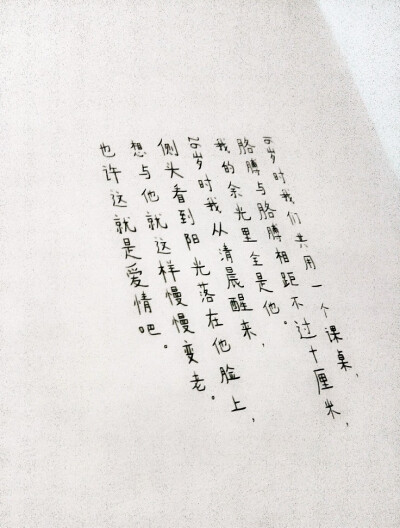 16岁时我们共用一个课桌，
胳膊与胳膊相距不过十厘米，
我的余光里全是他。
26岁时我从清晨醒来，
侧头看到阳光落在他脸上，
想与他就这样慢慢变老。
也许这就是爱情吧。